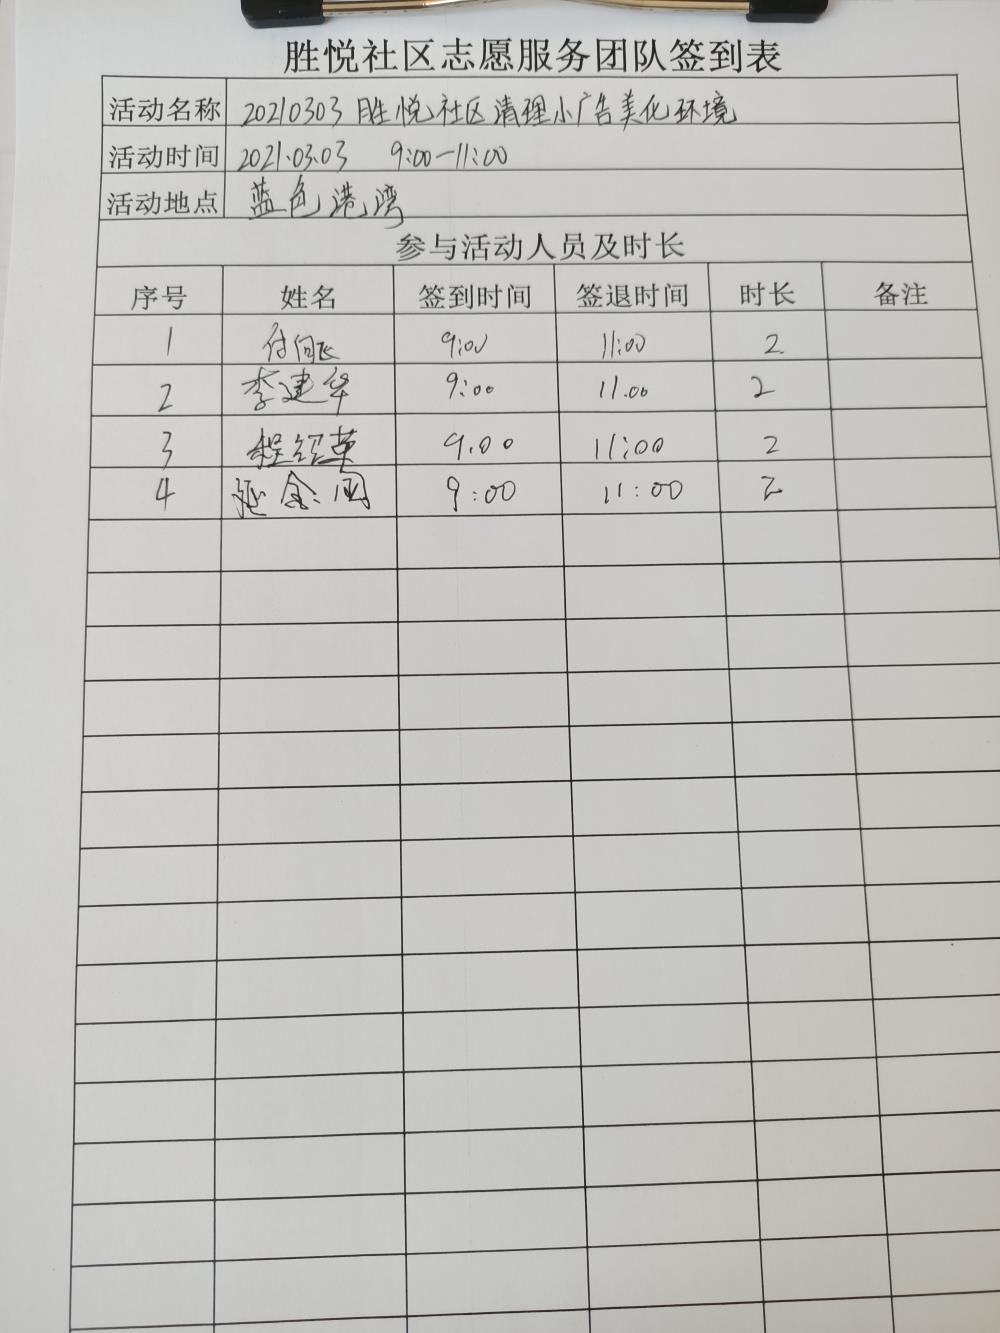 胜悦社区志愿服务团队签到表
活动名称 20210303胜悦社区清理小广告美化环境
活动时间 2021.03.03 9:00-11:00
活动地点 蓝色港湾
参与活动人员及时长
序号 姓名 签到时间 签退时间 时长 备注
1 付向飞 9:00 11:00 2
2 李建华 9:00 11.00 2
3 程绍英 9.00 11:00 2
4 9:00 11:00 2